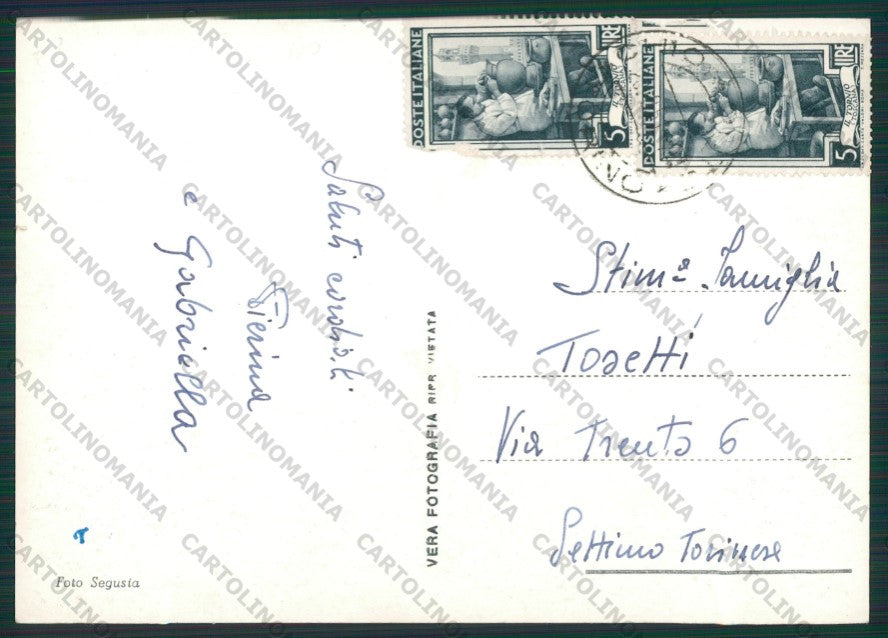 POSTE ITALIANE
LIRE
5
IL TORNIO
POSTE ITALIANE
LIRE
5
IL TORNIO
Saluti cordiali
Pierina
e Gabriella
VERA FOTOGRAFIA RIPR. VIETATA
Stim.a Famiglia
Tosetti
Via Trento 6
Settimo Torinese
Foto Segusia
CARTOLINOMANIA